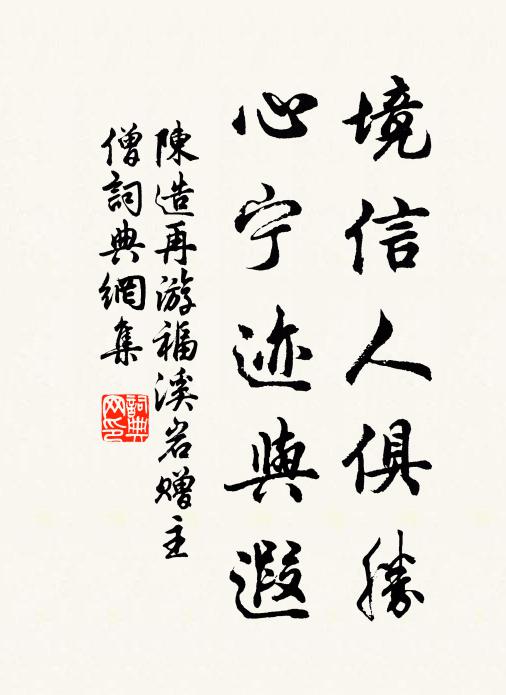 境信人俱勝
心宁迹與遐
陳造再游福溪岩贈主
僧詞典網集
詞典网印